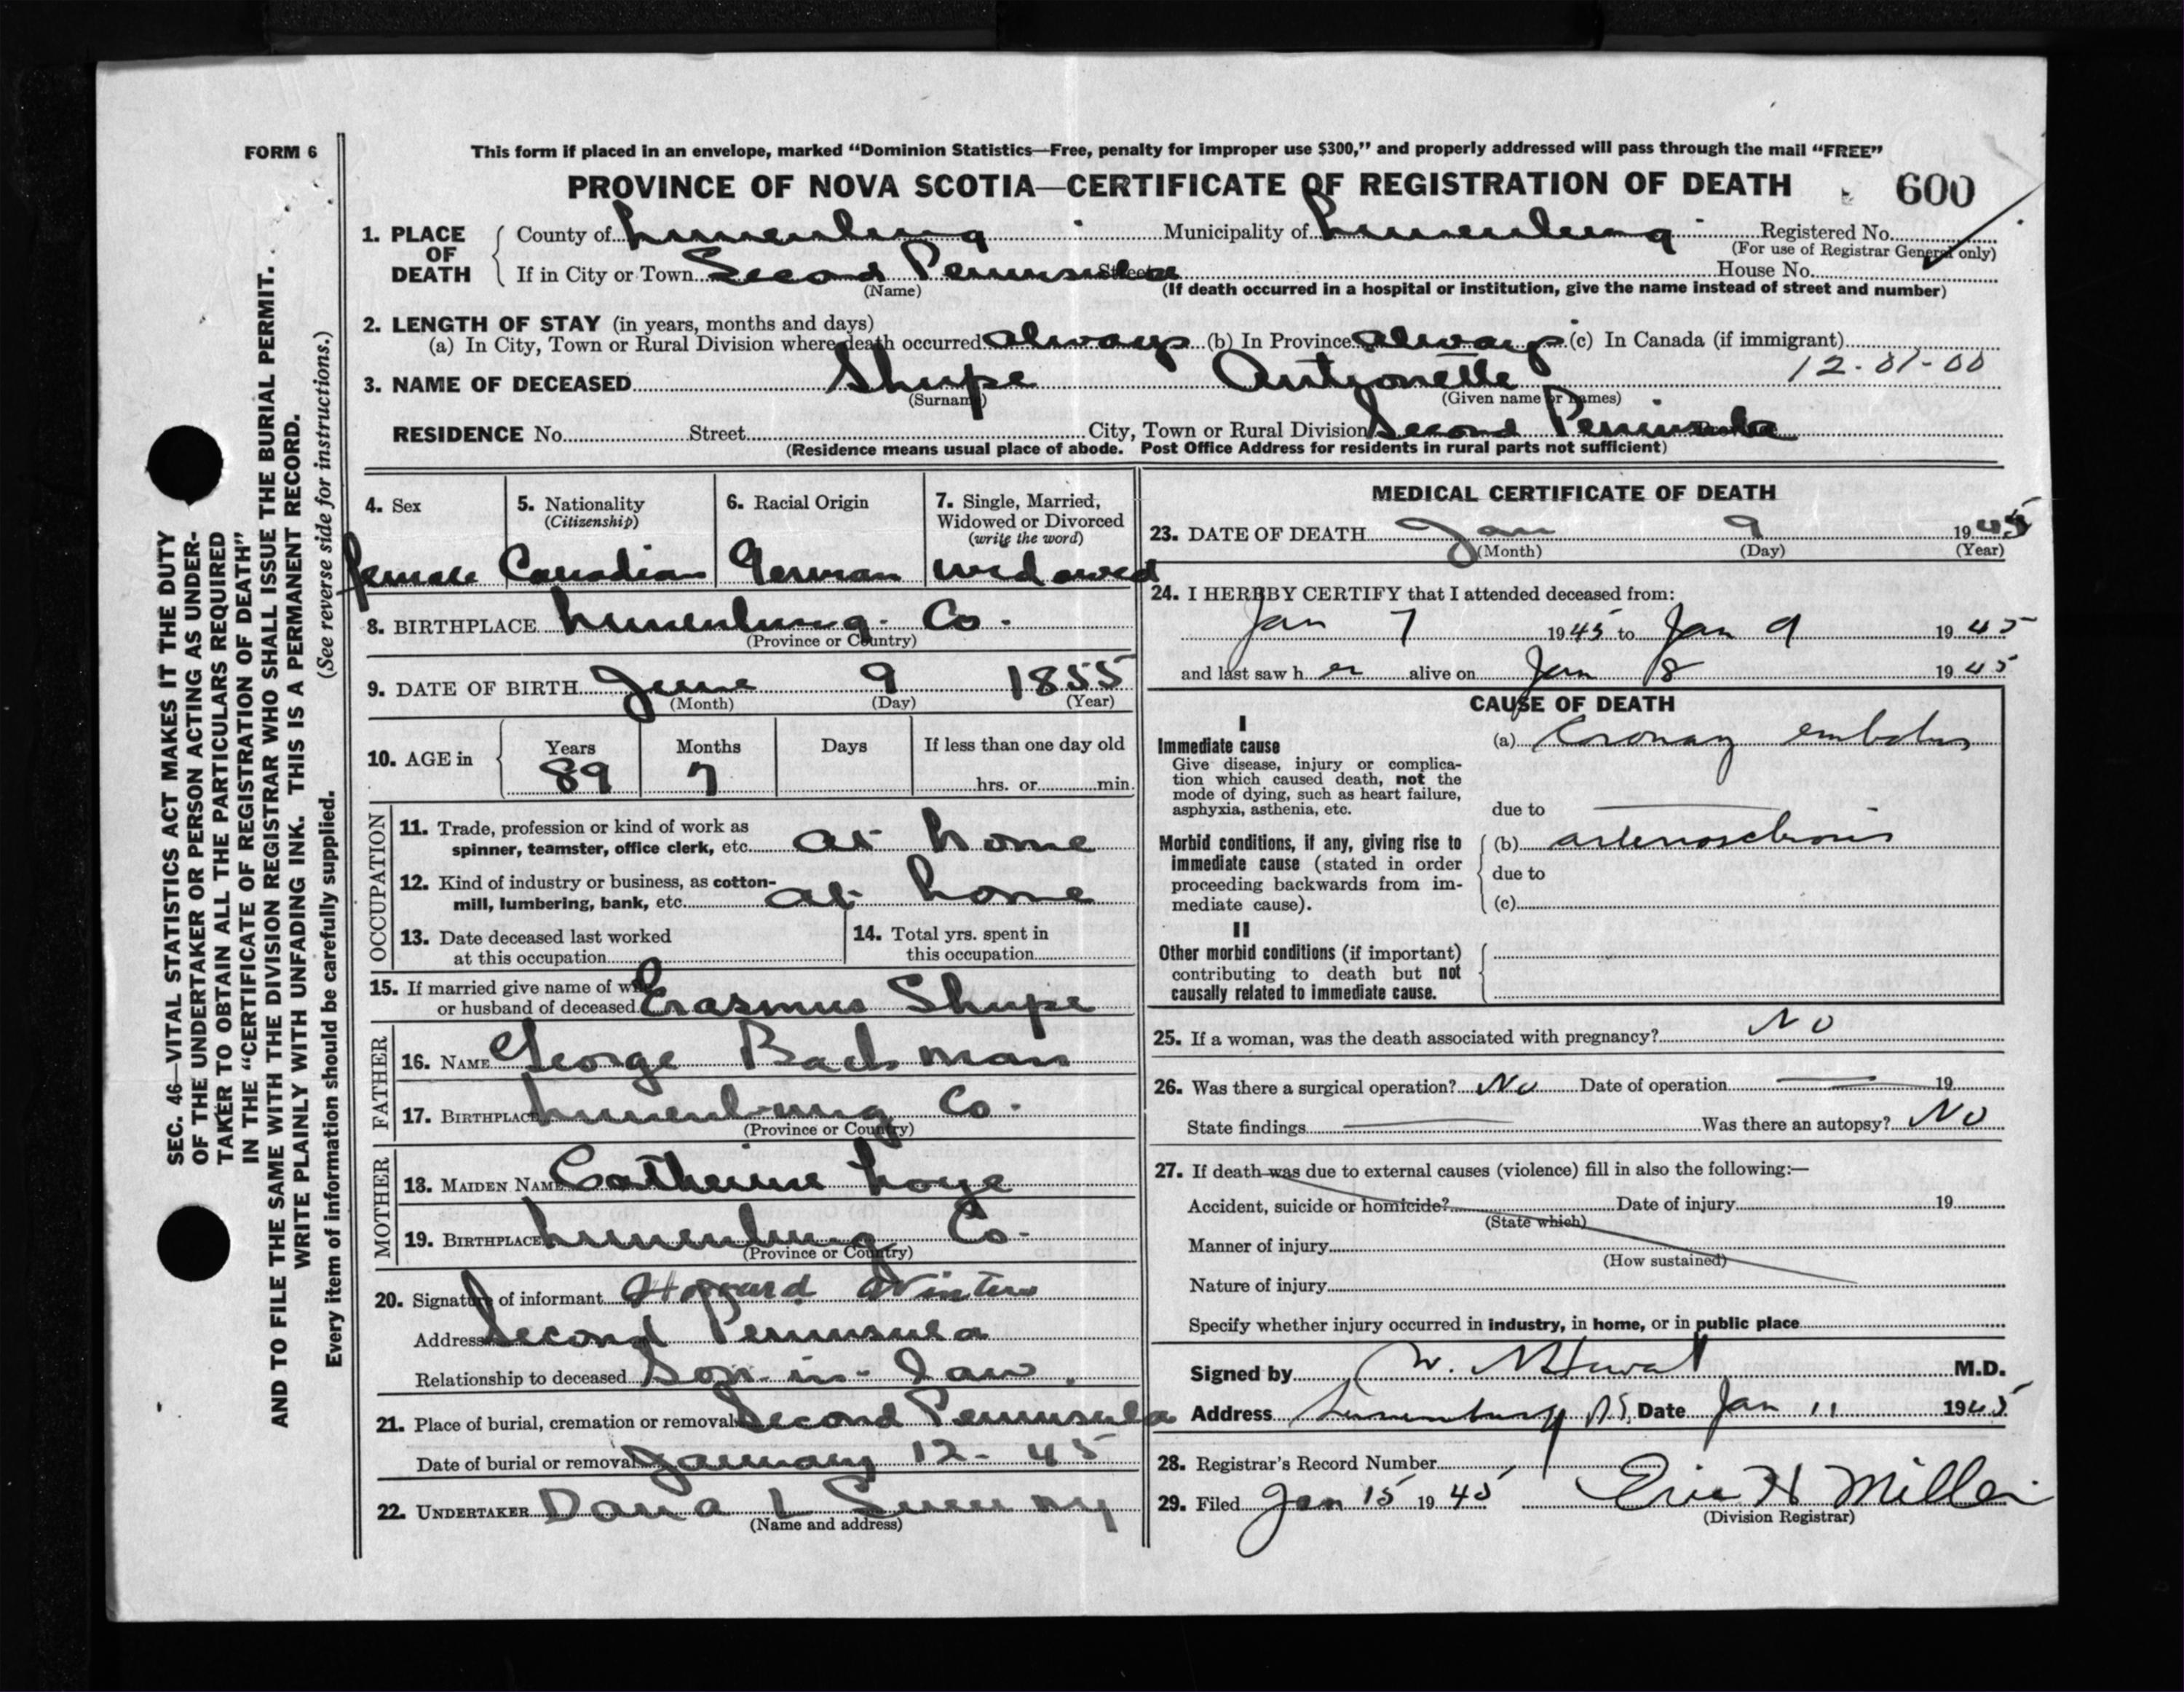 FORM 6
This form if placed in an envelope, marked “Dominion Statistics—Free, penalty for improper use $300,” and properly addressed will pass through the mail “FREE”
PROVINCE OF NOVA SCOTIA—CERTIFICATE OF REGISTRATION OF DEATH 600
1. PLACE OF DEATH County of Lunenburg Municipality of Lunenburg Registered No.
(For use of Registrar General only)
If in City or Town Second Peninsula Street House No.
(Name) (If death occurred in a hospital or institution, give the name instead of street and number)
2. LENGTH OF STAY (in years, months and days)
(a) In City, Town or Rural Division where death occurred always (b) In Province always (c) In Canada (if immigrant)
12-01-00
3. NAME OF DECEASED Shupe Antionette
(Surname) (Given name or names)
RESIDENCE No. Street City, Town or Rural Division Second Peninsula
(Residence means usual place of abode. Post Office Address for residents in rural parts not sufficient)
4. Sex female
5. Nationality (Citizenship) Canadian
6. Racial Origin German
7. Single, Married, Widowed or Divorced (write the word) widowed
8. BIRTHPLACE Lunenburg Co.
(Province or Country)
9. DATE OF BIRTH June 9 1855
(Month) (Day) (Year)
10. AGE in Years 89 Months 7 Days If less than one day old
hrs. or min.
OCCUPATION
11. Trade, profession or kind of work as
spinner, teamster, office clerk, etc. at home
12. Kind of industry or business, as cotton-
mill, lumbering, bank, etc. at home
13. Date deceased last worked
at this occupation
14. Total yrs. spent in
this occupation
15. If married give name of wife
or husband of deceased Erasmus Shupe
FATHER
16. NAME George Bachman
17. BIRTHPLACE Lunenburg Co.
(Province or Country)
MOTHER
18. MAIDEN NAME Catherine Loye
19. BIRTHPLACE Lunenburg Co.
(Province or Country)
20. Signature of informant Howard Winters
Address Second Peninsula
Relationship to deceased Son-in-law.
21. Place of burial, cremation or removal Second Peninsula
Date of burial or removal January 12-45
22. UNDERTAKER Dana L Sweeny
(Name and address)
MEDICAL CERTIFICATE OF DEATH
23. DATE OF DEATH Jan 9 1945
(Month) (Day) (Year)
24. I HEREBY CERTIFY that I attended deceased from:
Jan 7 1945 to Jan 9 1945
and last saw her alive on Jan 8 1945
CAUSE OF DEATH
I
Immediate cause
Give disease, injury or complica-
tion which caused death, not the
mode of dying, such as heart failure,
asphyxia, asthenia, etc.
(a) Coronay embolus
due to
Morbid conditions, if any, giving rise to
immediate cause (stated in order
proceeding backwards from im-
mediate cause).
(b) arteriosclerosis
due to
(c)
II
Other morbid conditions (if important)
contributing to death but not
causally related to immediate cause.
25. If a woman, was the death associated with pregnancy? No
26. Was there a surgical operation? No Date of operation 19
State findings Was there an autopsy? No
27. If death was due to external causes (violence) fill in also the following:—
Accident, suicide or homicide? Date of injury 19
(State which)
Manner of injury
(How sustained)
Nature of injury
Specify whether injury occurred in industry, in home, or in public place
Signed by W. M.D.
Address Lunenburg N.S. Date Jan 11 1945
28. Registrar’s Record Number
29. Filed Jan 15 1945 Eric H Miller
(Division Registrar)
SEC. 46—VITAL STATISTICS ACT MAKES IT THE DUTY
OF THE UNDERTAKER OR PERSON ACTING AS UNDER-
TAKER TO OBTAIN ALL THE PARTICULARS REQUIRED
IN THE “CERTIFICATE OF REGISTRATION OF DEATH”
AND TO FILE THE SAME WITH THE DIVISION REGISTRAR WHO SHALL ISSUE THE BURIAL PERMIT.
WRITE PLAINLY WITH UNFADING INK. THIS IS A PERMANENT RECORD.
Every item of information should be carefully supplied. (See reverse side for instructions.)